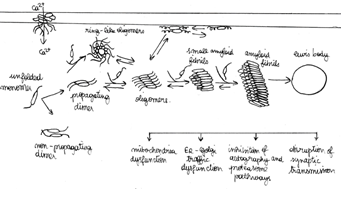 Ca²⁺
Ca²⁺
ring-like oligomers
small amyloid
fibrils
amyloid
fibrils
lewis body
unfolded
monomer
propagating
dimer
oligomers
non-propagating
dimer
mitochondrea
dysfunction
ER-Golgi
traffic
dysfunction
inhibition of
autography and
proteasome
pathways
disruption of
synaptic
transmission